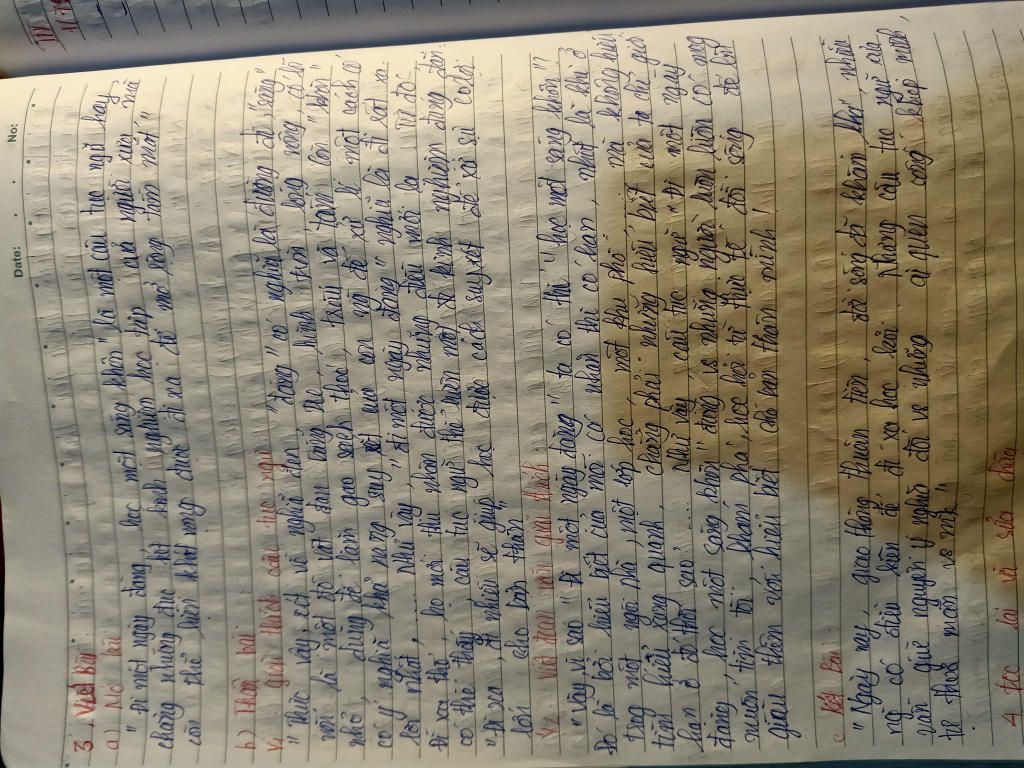 Date:
No:
3. Viết bài
a) Mở bài
" Đi một ngày đàng, học một sàng khôn " là một câu tục ngữ hay
chẳng những đúc kết kinh nghiệm học tập của người xưa, mà
còn thể hiện khát vọng được đi ra để mở rộng tầm mắt "
b) Thân bài
giải thích câu tục ngữ
" Thực vậy, xét về nghĩa đen " đàng " có nghĩa là đường đi, " sàng "
nhỏ, dùng để làm gạo sạch thóc, trấu và tấm còn " khôn "
có ý nghĩa khả năng suy xét của con ng để xử lí một cách có
lợi nhất, .... Như vậy, " đi một ngày đàng " nghĩa là đi xa
đi xa đó, họ mới thu nhận được những điều mới lạ. Từ đó
có thể thấy câu tục ngữ thể hiện một kinh nghiệm đúng đắn:
" đi xa, đi nhiều sẽ giúp học được cách suy xét để xử sự có lợi
hơn cho bản thân "
" Vậy, vì sao " đi một ngày đàng " ta có thể " học một sàng khôn "?
Đó là bởi hiểu biết của mỗi cá nhân thì có hạn, nhất là khi ở
trong một ngôi nhà, một lớp học, một khu phố mà không hiểu
tìm hiểu xung quanh. chẳng phải những hiểu biết của ta chỉ giới
hạn ở đó thôi sao? .... Như vậy, câu tục ngữ " đi một ngày
đàng, học một sàng khôn " đúng vs những người luôn luôn có mong
muốn tìm tòi, khám phá, học hỏi từ thực tế đời sống để làm
giàu thêm vốn hiểu biết cho mở thân mình!
c. Kết bài:
" Ngày nay, giao thông thuận tiện, đời sống đã khấm khá, nhiều
ng có điều kiện để đi xa học hỏi. Nhưng câu tục ngữ của
vẫn giữ nguyên ý nghĩa đối vs những ai quen cong khép mình,
tự thoả mãn vs mk "
4. Đọc lại và sửa chữa